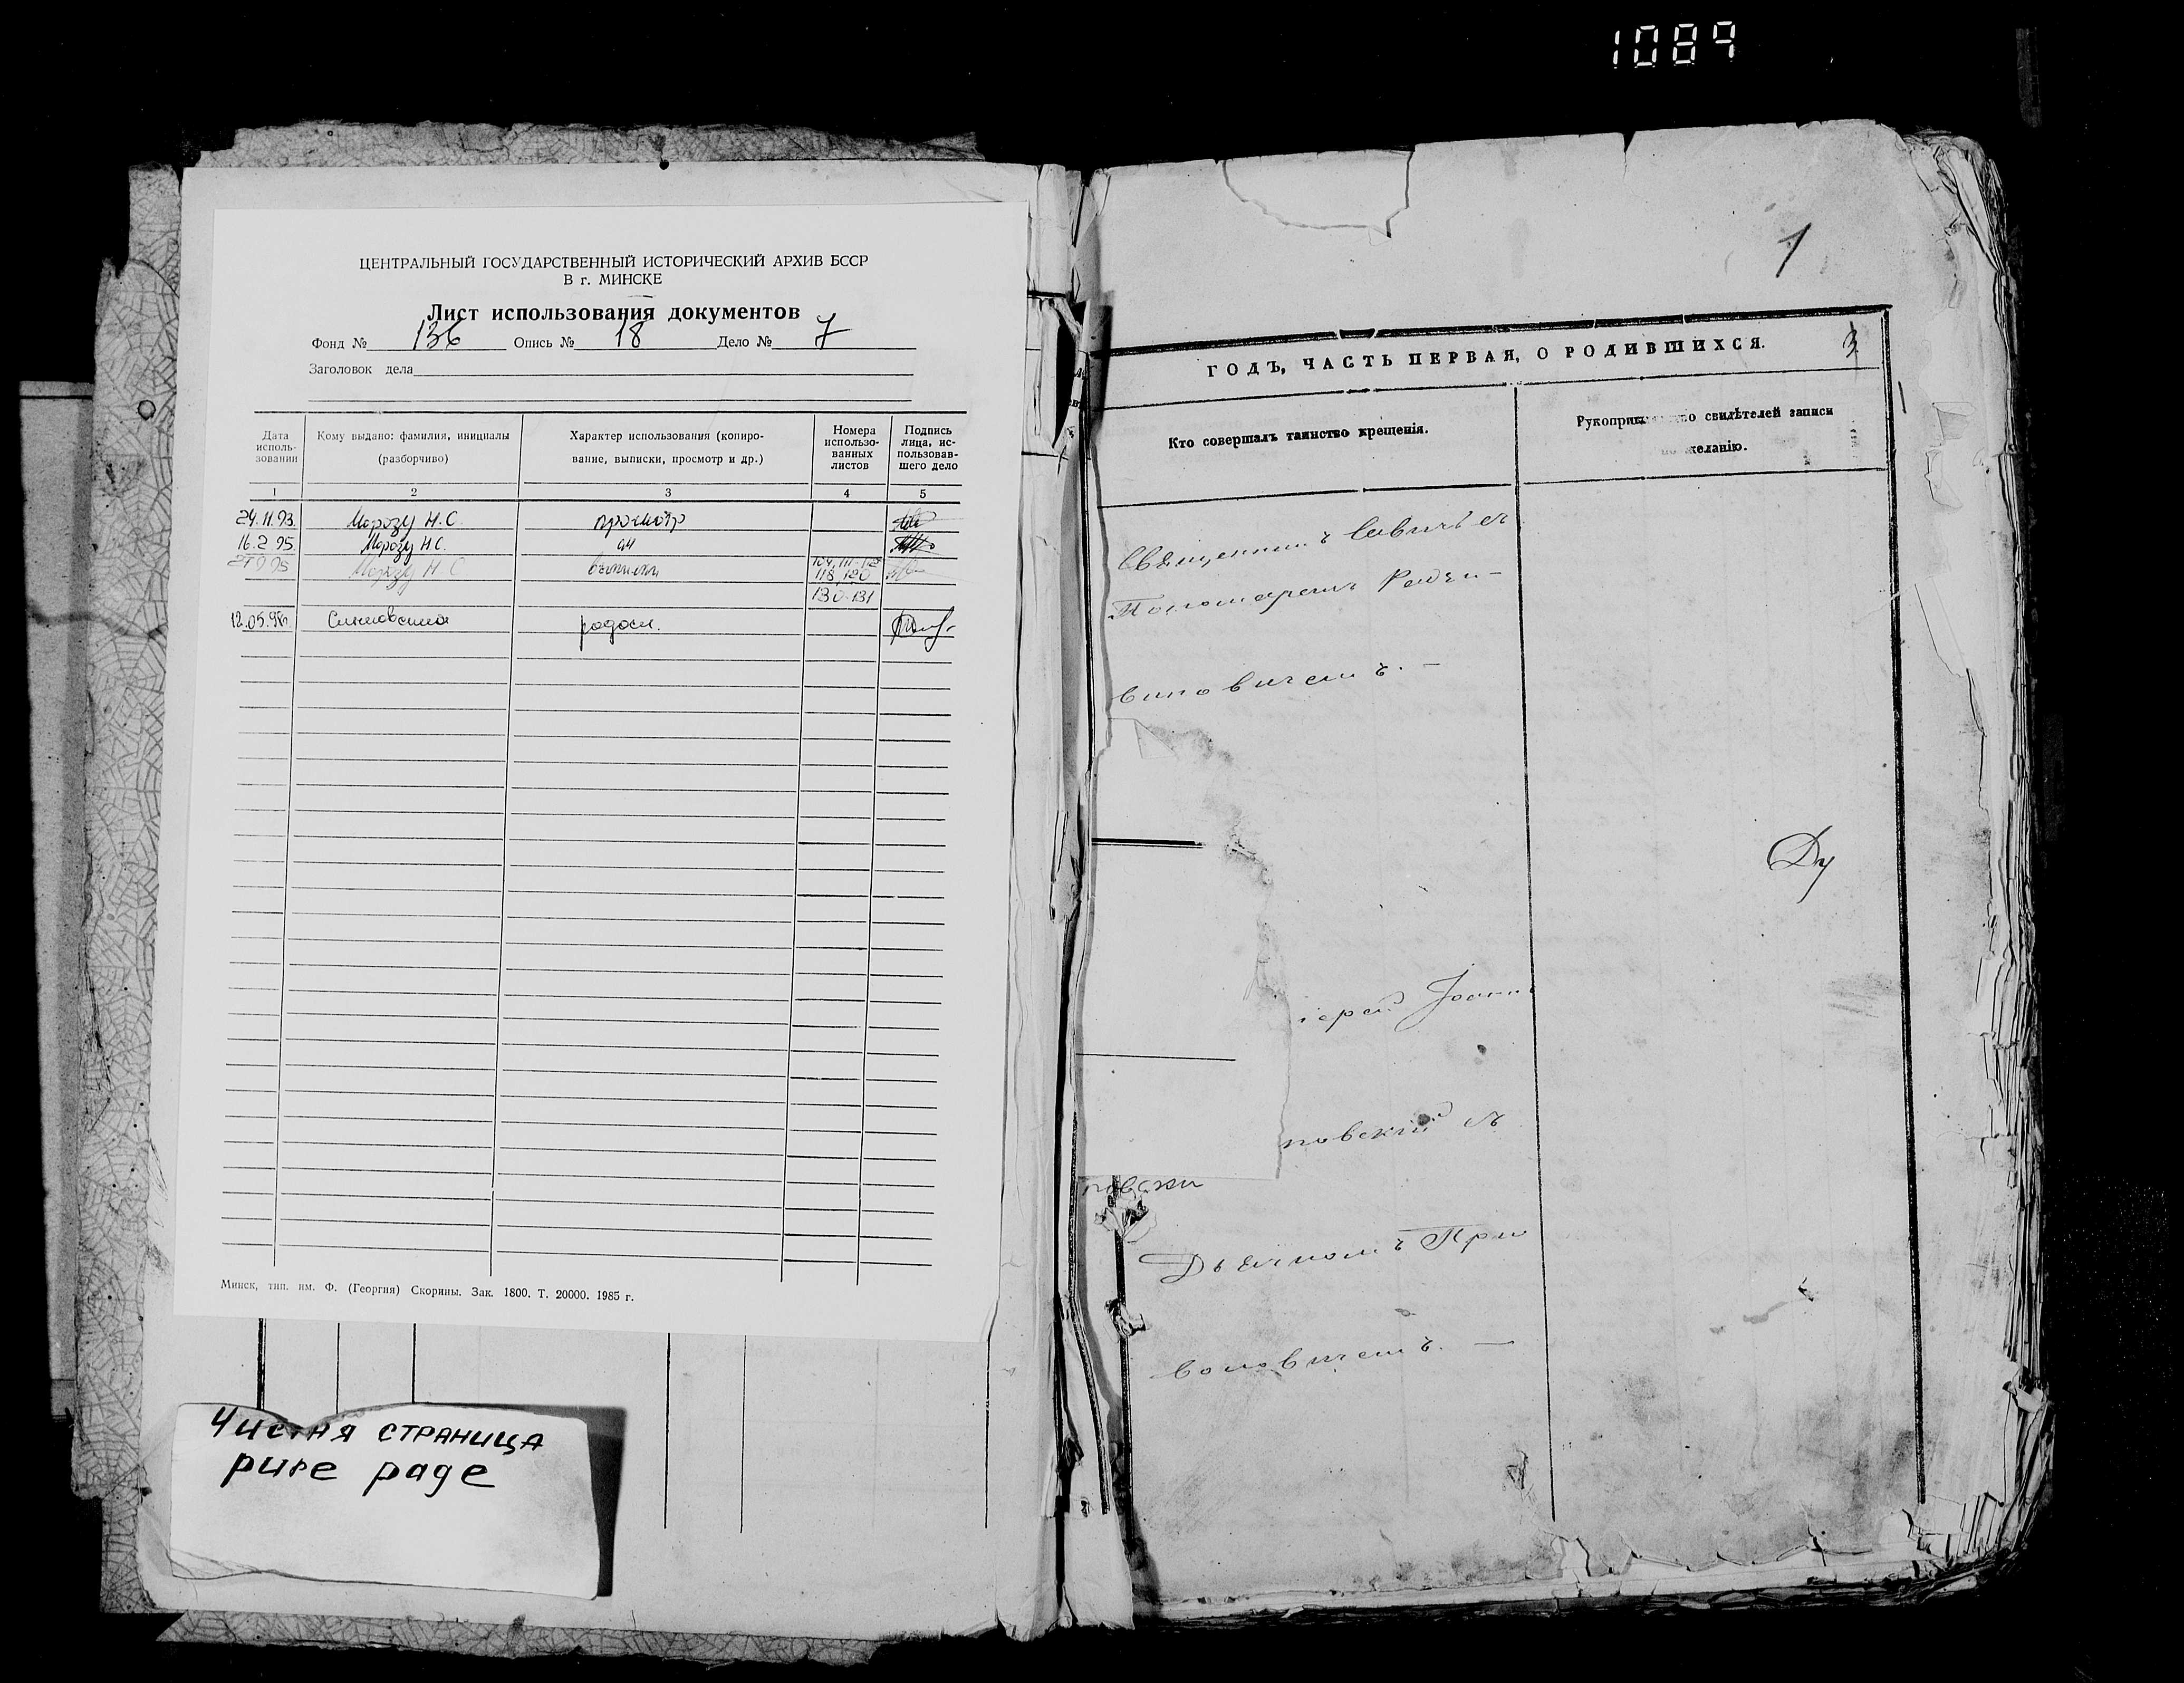 1089
ЦЕНТРАЛЬНЫЙ ГОСУДАРСТВЕННЫЙ ИСТОРИЧЕСКИЙ АРХИВ БССР
В г. МИНСКЕ
Лист использования документов
Фонд № 136 Опись № 18 Дело № 7
Заголовок дела
Дата исполь-зовании
Кому выдано: фамилия, инициалы (разборчиво)
Характер использования (копиро-вание, выписки, просмотр и др.)
Номера использо-ванных листов
Подпись лица, ис-пользовав-шего дело
1 2 3 4 5
24.11.93. Морозу Н.С. просмотр
16.2.95 Морозу Н.С.
Морозу Н.С. выписки
118, 120
130-131
12.05.98г.
Минск, тип. им. Ф. (Георгия) Скорины. Зак. 1800. Т. 20000. 1985 г.
Чистая страница
pure page
1
ГОДЪ, ЧАСТЬ ПЕРВАЯ, О РОДИВШИХСЯ.
3
Кто совершалъ таинство крещенія.
свидѣтелей записи
Священникъ
Пономаремъ
иновичемъ. —
іерей Іоаннъ
новскій съ
новски
Дьячкомъ
воловичемъ. —
Ду